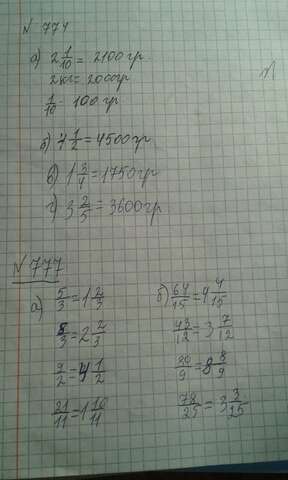 № 774
а) 2 1/10 = 2100гр
2кг = 2000гр
1/10 - 100гр
б) 4 1/2 = 4500гр
в) 1 3/4 = 1750гр
г) 3 2/5 = 3600гр
№777
а) 5/3 = 1 2/3
8/3 = 2 2/3
9/2 = 4 1/2
21/11 = 1 10/11
б) 64/15 = 4 4/15
43/12 = 3 7/12
80/9 = 8 8/9
78/25 = 3 3/25